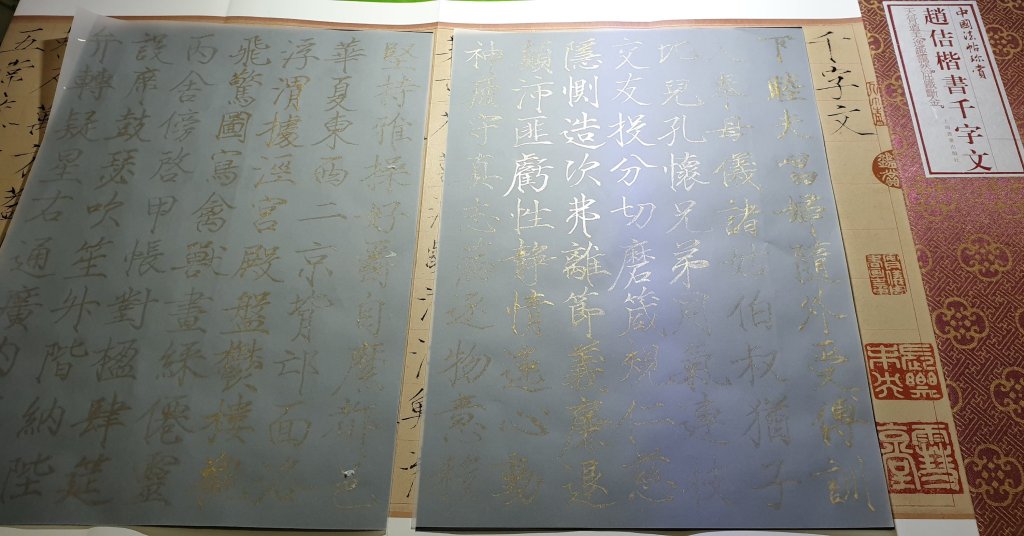 趙佶楷書千字文
千字文
下睦夫唱婦隨外受傅訓
入奉母儀諸姑伯叔猶子
比兒孔懷兄弟同氣連枝
交友投分切磨箴規仁慈
隱惻造次弗離節義廉退
顛沛匪虧性靜情逸心動
神疲守真志滿逐物意移
堅持雅操好爵自縻都邑
華夏東西二京背邙面洛
浮渭據涇宮殿盤鬱樓觀
飛驚圖寫禽獸畫綵僊靈
丙舍傍啓甲帳對楹肆筵
設席鼓瑟吹笙升階納陛
弁轉疑星右通廣內